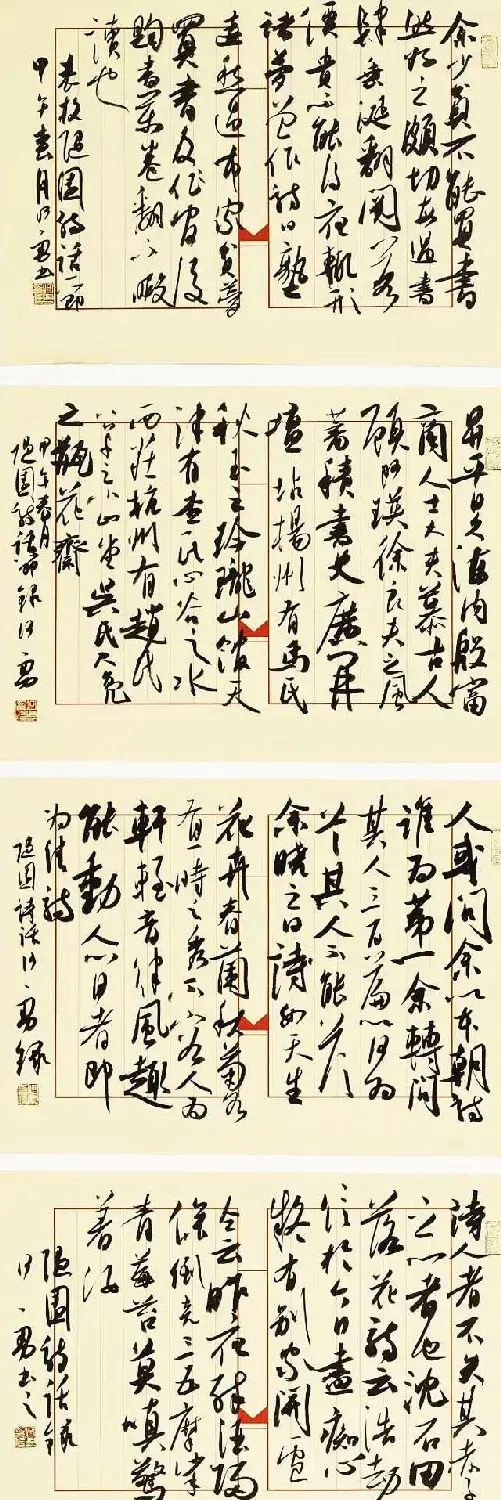 余少貧不能買書
然好之頗切每過書
肆垂涎翻閱若
價貴不能得夜輒形
諸夢寐作詩曰塾
遠愁過市家貧夢
買書及作官後
購書萬卷翻不暇
讀也
袁枚隨園詩話一節
甲午春月
昇平日久海內殷富
商人士大夫慕古人
顧阿瑛徐良夫之風
蓄積書史廣開
壇坫揚州有馬氏
秋玉之玲瓏山館天
津有查氏心谷之水
西莊杭州有趙氏
公千之小山堂吳氏尺鳧
之瓶花齋
甲午春月
隨園詩話節錄
人或問余以本朝詩
誰為第一余轉問
其人三百篇以何為
首其人不能答
余曉之曰詩如天生
花卉春蘭秋菊各
有一時之秀不容人為
軒輊音律風趣
能動人心目者即
為佳詩
隨園詩話
詩人者不失其赤子
之心者也沈石田
落花詩云浩劫
信於今日盡痴心
疑有別家開盧
仝云昨夜醉酒歸
僕倒竟三五摩挲
青莓苔莫嗔驚
著汝
隨園詩話錄